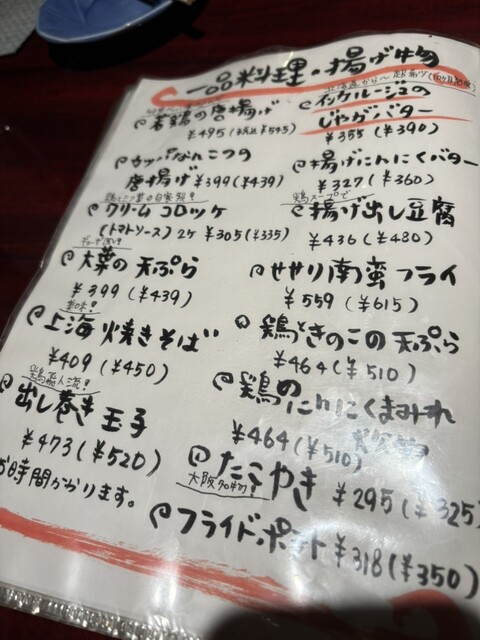 一品料理・揚げ物
若鶏の唐揚げ
¥495(税込¥545)
インカルージュの
じゃがバター
¥355(¥390)
カッパなんこつの
唐揚げ¥399(¥439)
揚げにんにくバター
¥327(¥360)
クリームコロッケ
(トマトソース)2ケ ¥305(¥335)
鶏スープで
揚げ出し豆腐
¥436(¥480)
大葉の天ぷら
¥399(¥439)
せせり南蛮フライ
¥559(¥615)
美味!
上海焼きそば
¥409(¥450)
鶏ときのこの天ぷら
¥464(¥510)
出し巻き玉子
¥473(¥520)
お時間かかります。
鶏の
にんにくまみれ
¥464(¥510)
たこやき
大阪名物!
¥295(¥325)
フライドポテト¥318(¥350)